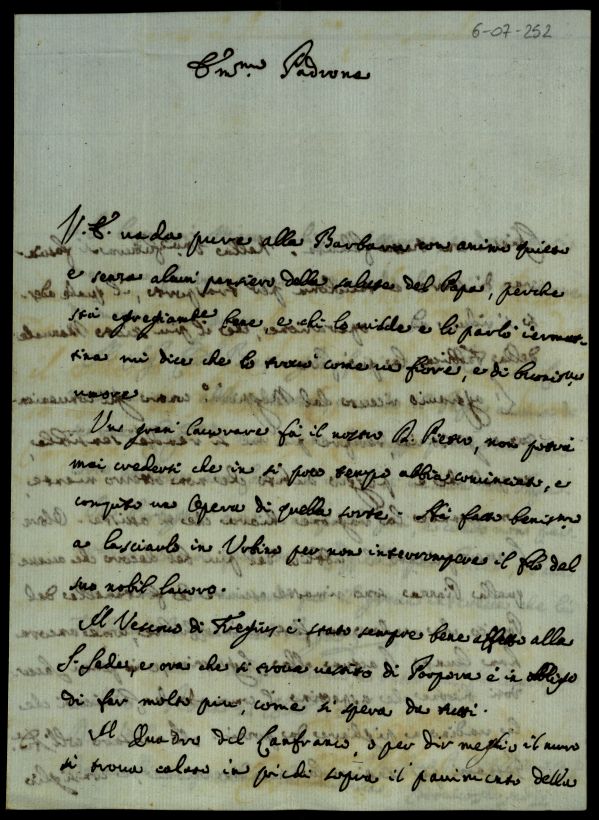 6-07-252
E.mo mio Padrone
V. E. vada pure alla Barbara con animo quieto
e senza alcun pensiero della salute del Papa, perche
stà egregiam.te bene, e chi lo vidde e li parlò iermat-
tina mi dice che lo trovò come un fiore, e di bonis.mo
umore.
Un gran lavorare fà il nostro P. Pietro, non potrà
mai credersi che in sì poco tempo abbia cominciato, e
compito un Opera di quella sorte. Hà fatto beniss.mo
a lasciarlo in Urbino per non interrompere il filo del
suo nobil lavoro.
Il Vescovo di è stato sempre bene affetto alla
S. Sede, e ora che si trova vestito di Porpora è in obbligo
di far molto piu, come si spera da tutti.
Il Quadro del Lanfranco, o per dir meglio il muro
si trova calato in piedi sopra il pavimento della